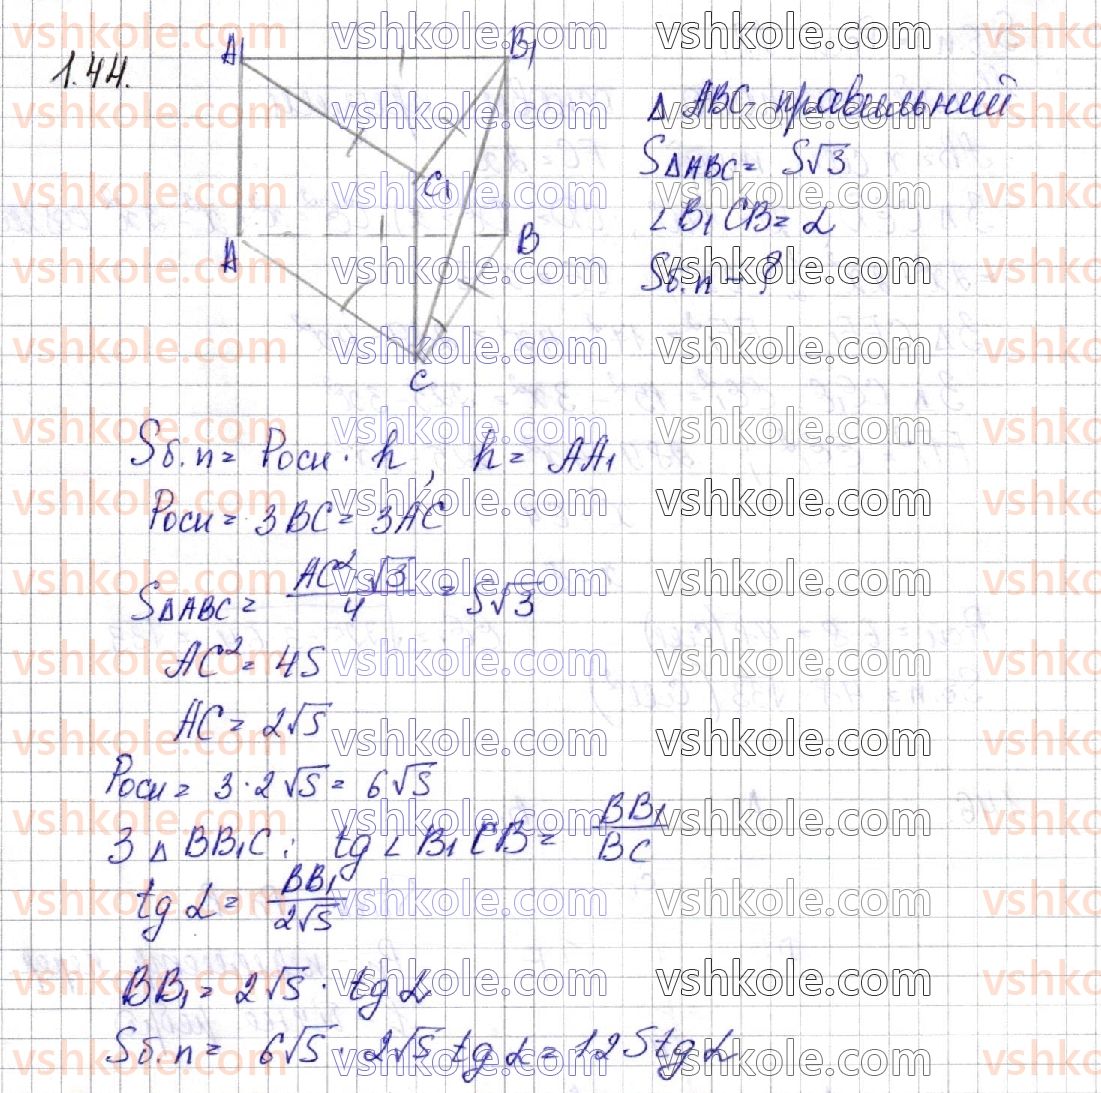 1.44.
A₁ B₁
C₁
A B
C
△ ABC - правильний
S△ABC = S√3
∠B₁CB = α
Sб.п - ?
Sб.п = Pосн · h, h = AA₁
Pосн = 3BC = 3AC
S△ABC = AC²√3/4 = S√3
AC² = 4S
AC = 2√S
Pосн = 3·2√S = 6√S
З △BB₁C: tg∠B₁CB = BB₁/BC
tgα = BB₁/2√S
BB₁ = 2√S · tgα
Sб.п = 6√S · 2√S tgα = 12Stgα
vshkole.com